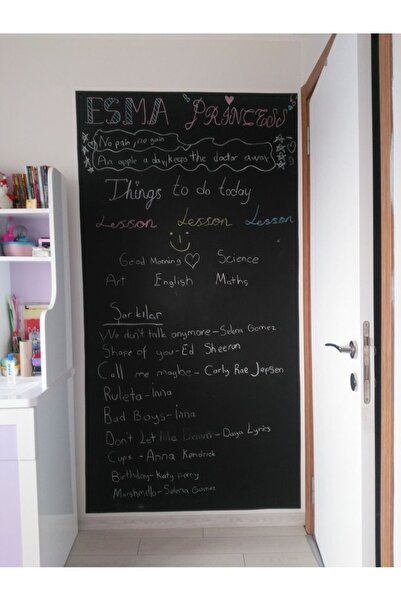 ESMA PRINCESS
No pain, no gain
An apple a day, keeps the doctor away
Things to do today
Lesson Lesson Lesson
Good Morning Science
Art English Maths
Şarkılar
We don't talk anymore - Selena Gomez
Shape of you - Ed Sheeran
Call me maybe - Carly Rae Jepsen
Ruleta - Inna
Bad Boys - Inna
Don't Let Me Down - Daya Lyrics
Cups - Anna Kendrick
Birthday - Katy Perry
Marshmello - Selena Gomez